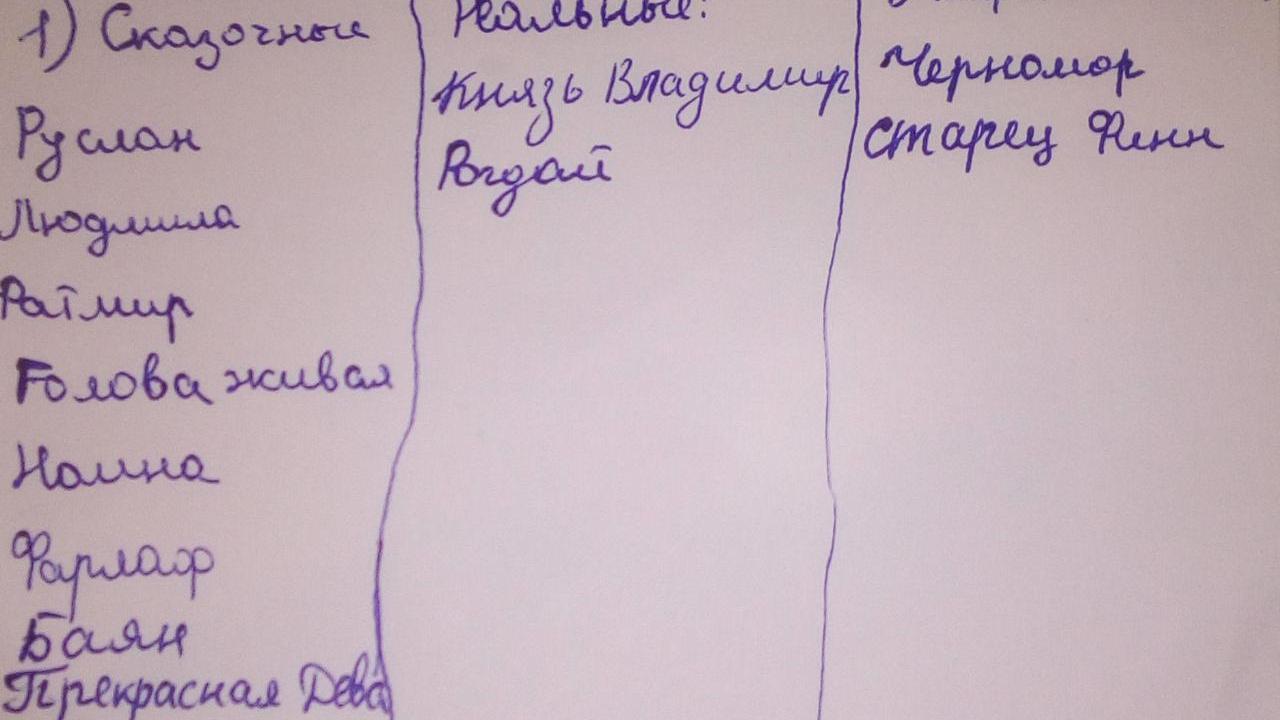 1) Сказочные
Руслан
Людмила
Ратмир
Голова живая
Наина
Фарлаф
Баян
Прекрасная Дева
Реальные:
Князь Владимир
Рогдай
Черномор
старец Финн